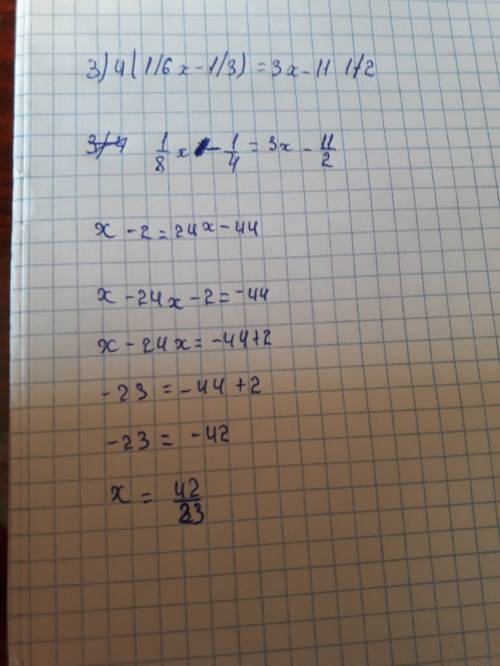 3) 4 (1/6x - 1/3) = 3x - 11 1/2
3/4 1/8 x - 1/4 = 3x - 11/2
x - 2 = 24x - 44
x - 24x - 2 = -44
x - 24x = -44 + 2
-23 = -44 + 2
-23 = -42
x = 42/23